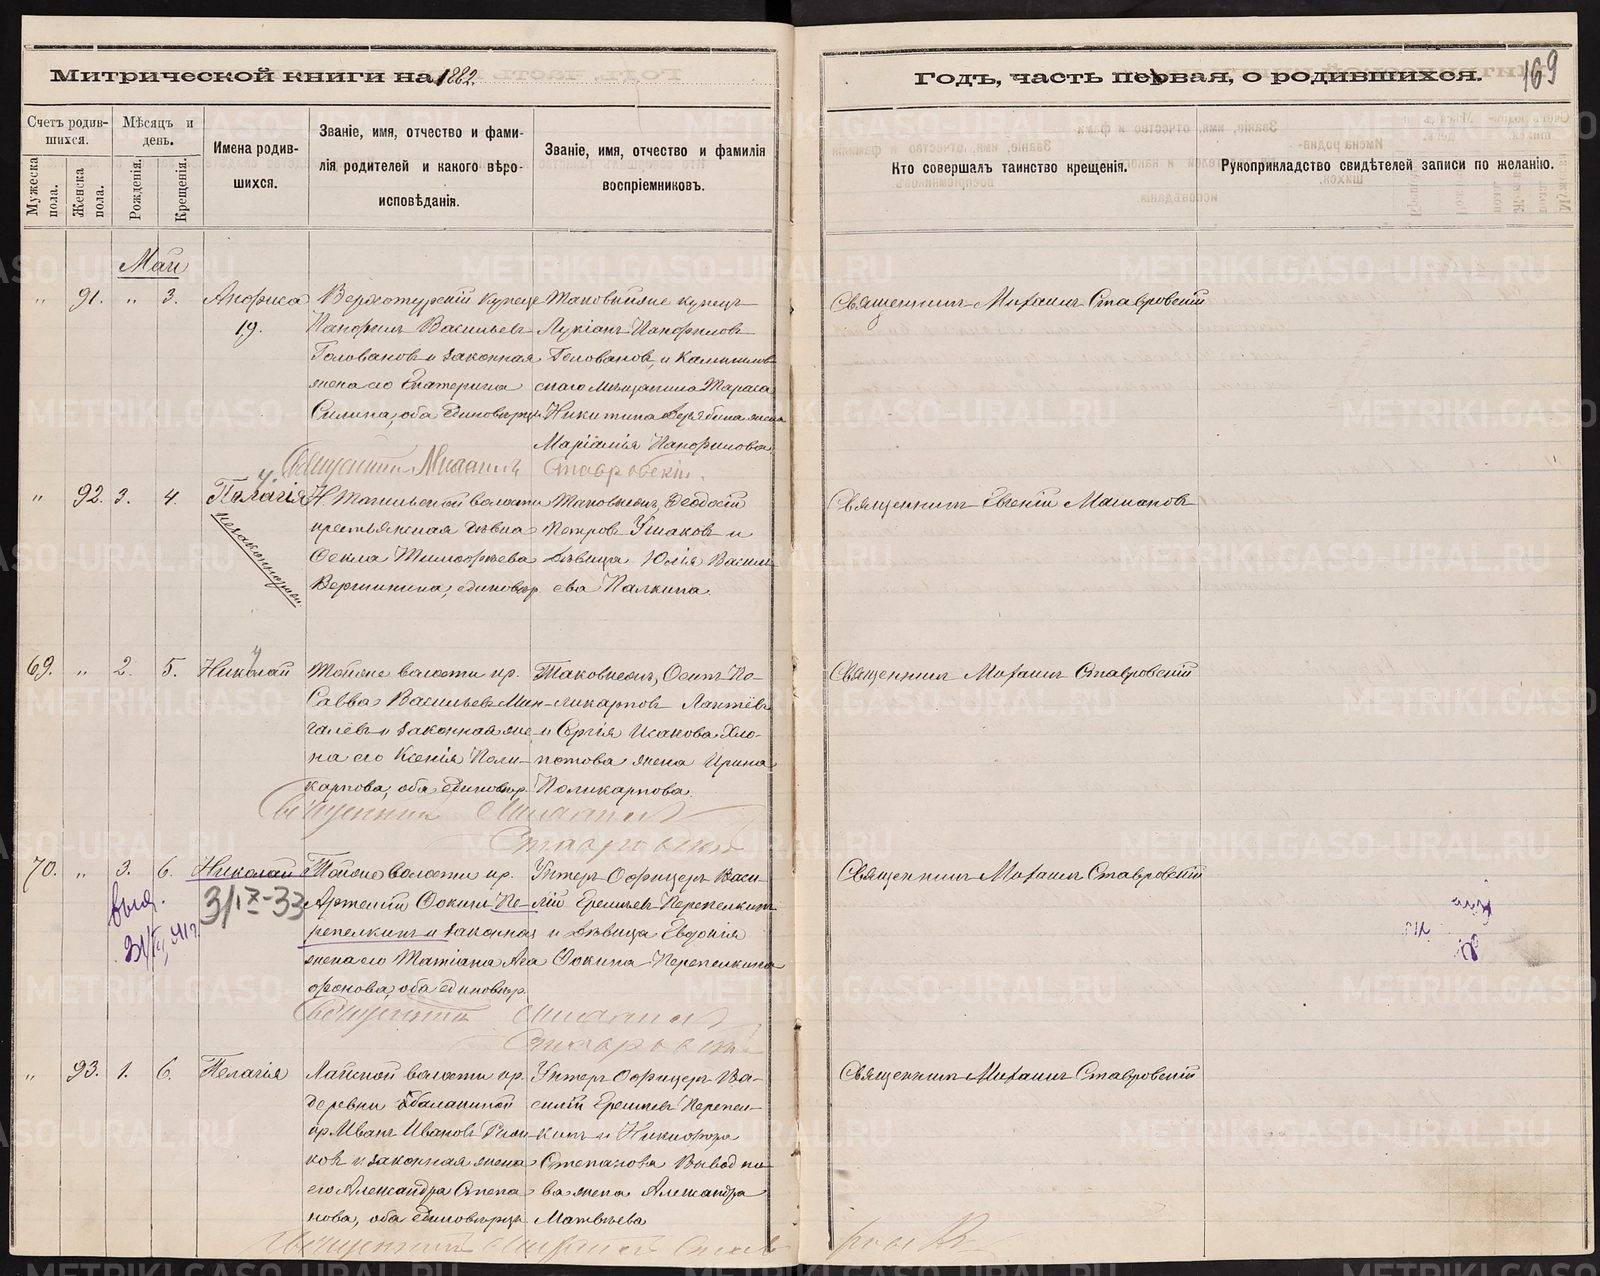 Митрической книги на 1882.
Годъ, часть первая, о родившихся.
169
Счетъ родив-
шихся.
Мѣсяцъ и
день.
Мужеска
пола.
Женска
пола.
Рожденія.
Крещенія.
Имена родив-
шихся.
Званіе, имя, отчество и фами-
лія родителей и какого вѣро-
исповѣданія.
Званіе, имя, отчество и фамилія
воспріемниковъ.
Кто совершалъ таинство крещенія.
Рукоприкладство свидѣтелей записи по желанію.
Май
" 91. " 3. Анфиса
19.
Верхотурскій купецъ
Панфилъ Васильевъ
Головановъ и законная
жена его Екатерина
Силина, оба единовѣрцы
купецъ
Лукіанъ Панфиловъ
Головановъ, и Камышлов-
скаго мѣщанина Тараса
Никитина жена
Маріамія Панфилова
Священникъ Михаилъ Ставровскій
Священникъ Михаилъ Ставровскій.
" 92. 3. 4. Пелагія
незаконнорожд.
Н. Тагильской волости
крестьянская дѣвка
Фекла Тимофѣева
Вершинина, единовѣр.
Феодосій
Петровъ Ушаковъ и
дѣвица Юлія Василь
ева Палкина.
Священникъ Евгеній
69. " 2. 5. Николай
волости кр.
Савва Васильевъ Мин-
галевъ и законная же-
на его Ксенія Поли-
карпова, оба единовѣр.
Осипъ По-
ликарповъ Лаптевъ
и Сергія Исакова Хло-
потова жена Ирина
Поликарпова.
Священникъ Михаилъ Ставровскій
Священникъ Михаилъ
Ставровскій
70. " 3. 6. Николай
3/IX-33
волости кр.
Артемій Фокинъ Пе-
репелкинъ и законная
жена его Татіана Ага
фонова, оба единовѣр.
Унтеръ Офицеръ Васи-
лій Еремѣевъ Перепелкинъ
и дѣвица Евдокія
Фокина Перепелкина
Священникъ Михаилъ Ставровскій
Священникъ Михаилъ
Ставровскій
" 93. 1. 6. Пелагія
Лайской волости кр.
деревни Балакиной
кр. Иванъ Ивановъ
ковъ и законная жена
его Александра Степа
нова, оба единовѣрцы
Унтеръ Офицеръ Ва-
силій Еремѣевъ Перепел-
кинъ и Никифора
Степанова
ва жена Александра
Матвѣева
Священникъ Михаилъ Ставровскій
Священникъ Михаилъ Став
METRIKI.GASO-URAL.RU